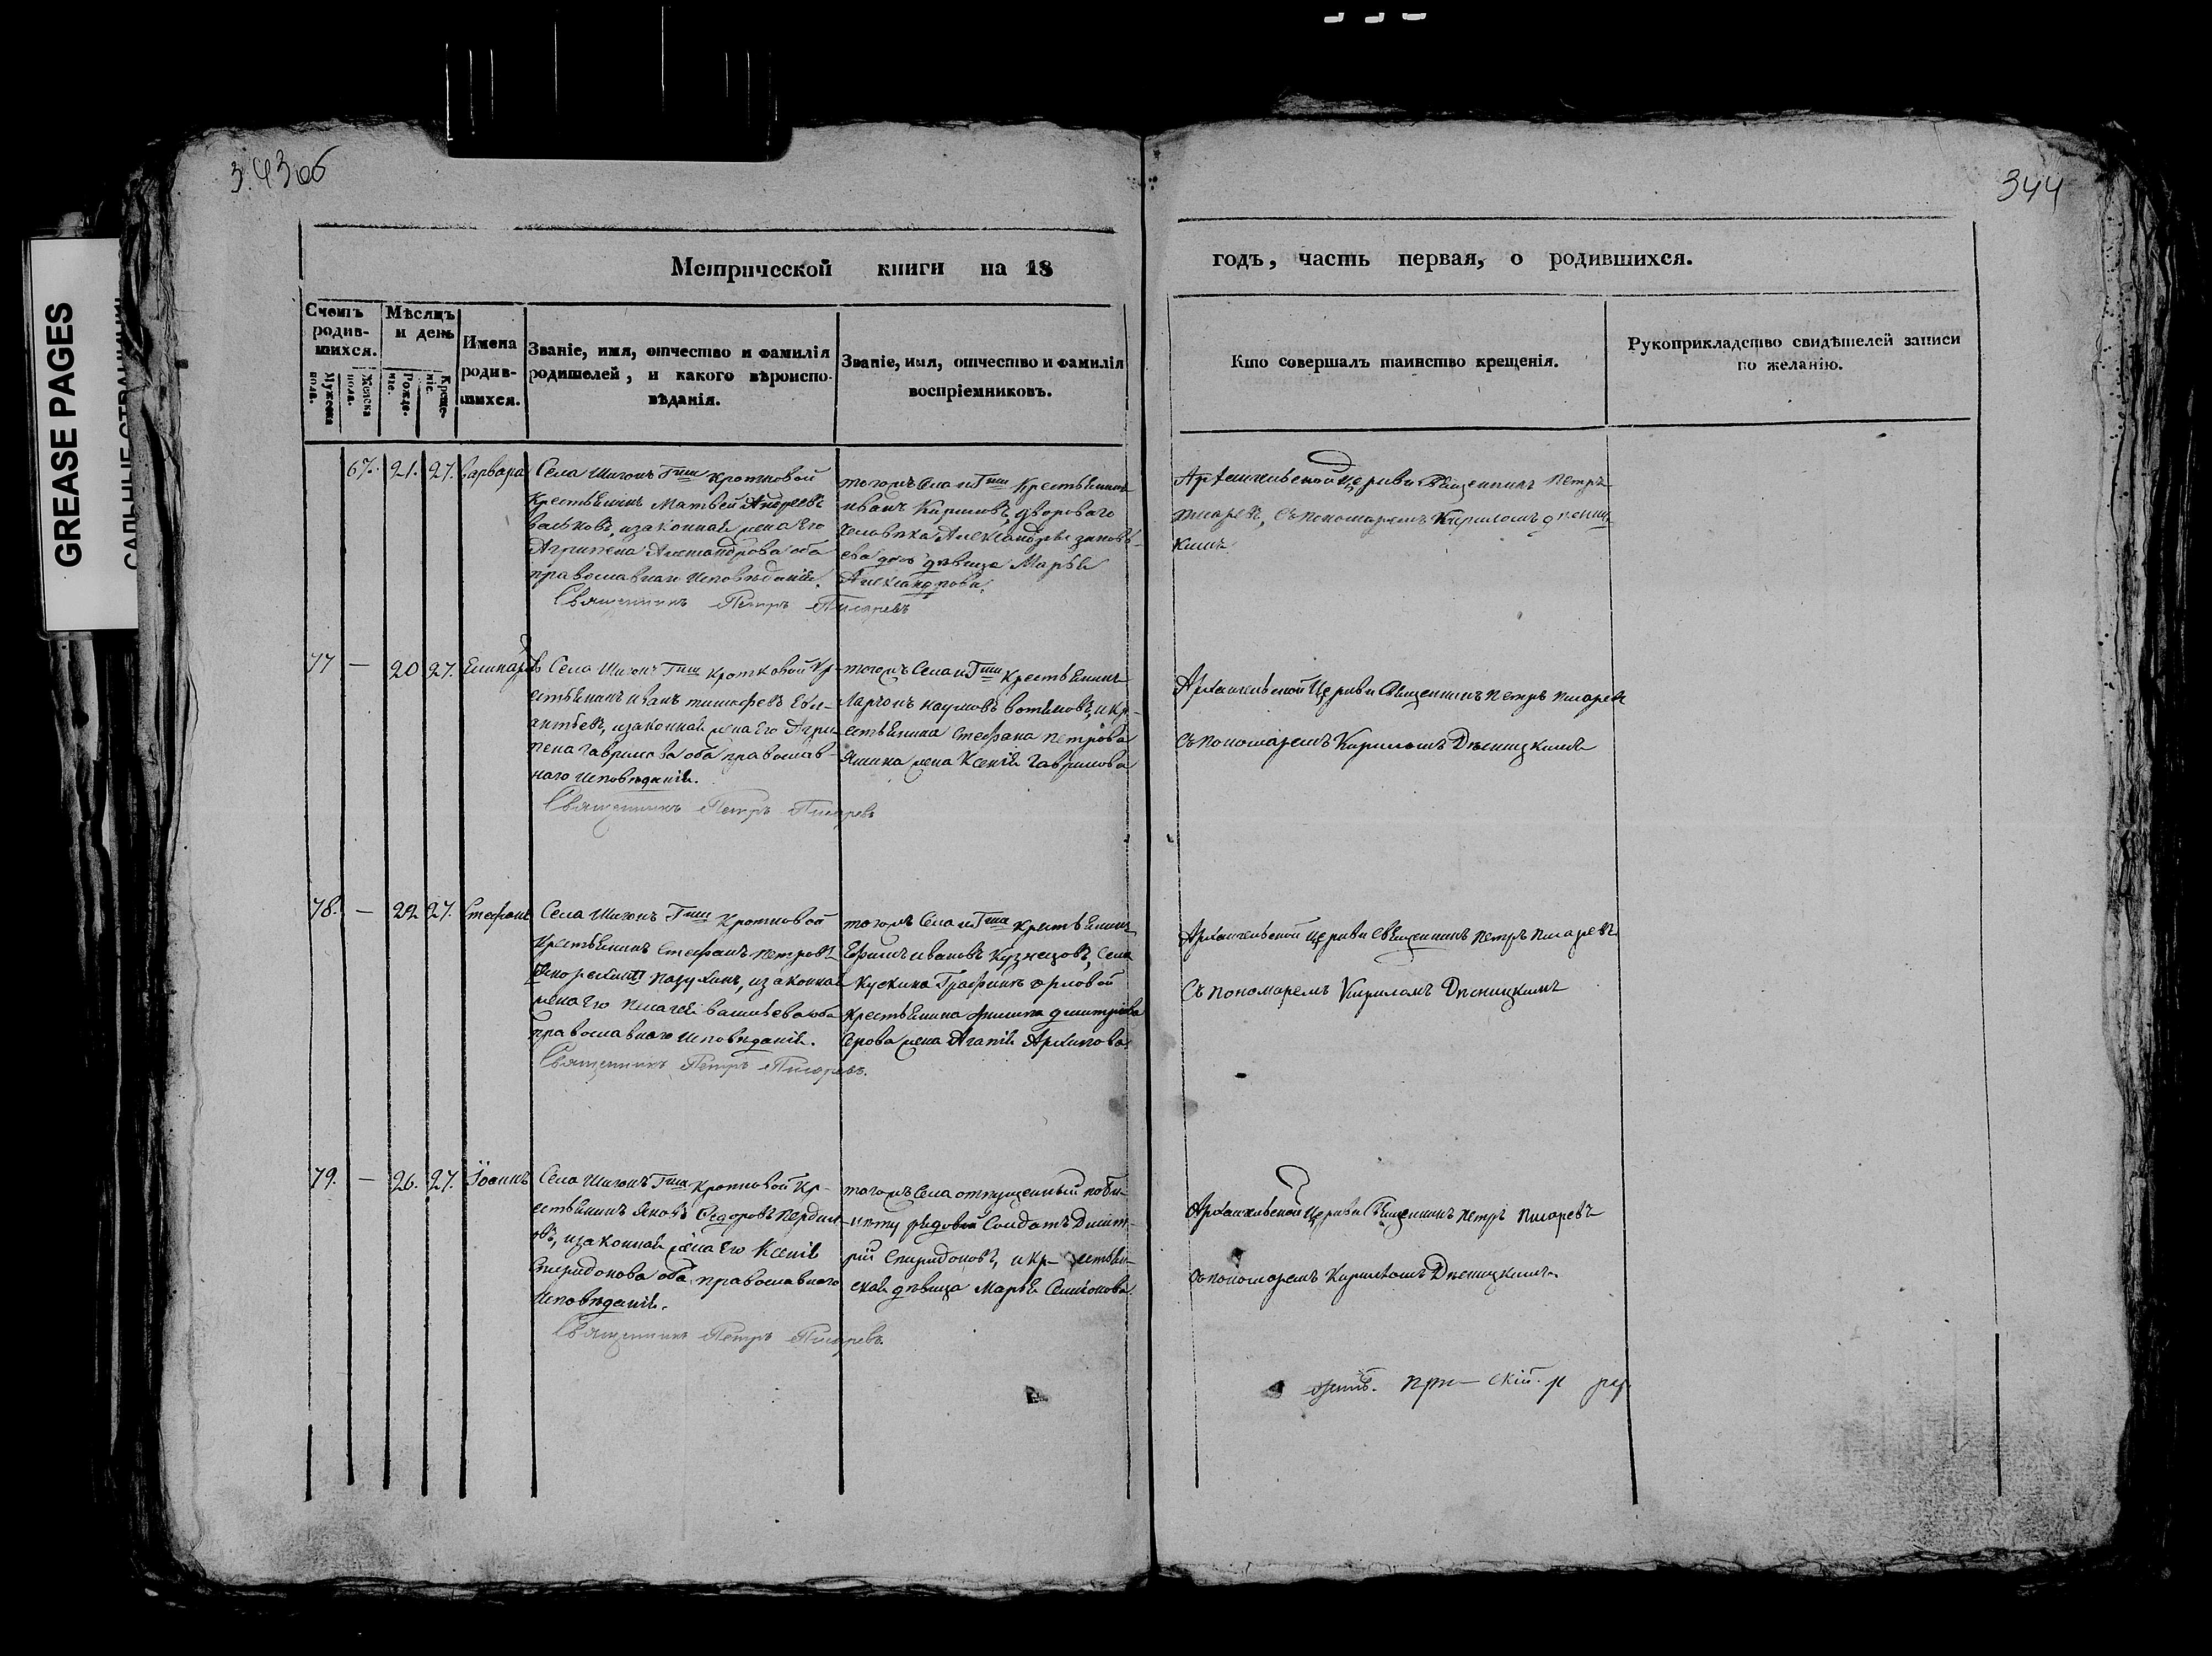 343об
344
GREASE PAGES
Метрической книги на 18
годъ, часть первая, о родившихся.
Счетъ родившихся.
Мужеска пола.
Женска пола.
Мѣсяцъ и день
Рожденіе.
Крещеніе.
Имена родившихся.
Званіе, имя, отчество и фамилія
родителей, и какого вѣроиспо-
вѣданія.
Званіе, имя, отчество и фамилія
воспріемниковъ.
Кто совершалъ таинство крещенія.
Рукоприкладство свидѣтелей записи
по желанію.
67. 21. 27. Варвара
Села Шигонъ Гжи Кротковой
Крестьянинъ Матвей Андреевъ
законная жена Его
Агрипена Александрова оба
православнаго Исповѣданія.
Священникъ Петръ Писаревъ
тогожъ Села и Гжи Крестьянинъ
иванъ Кириловъ, двороваго
человѣка Александра
дочь дѣвица Марья
Александрова.
Архангельской Церкви Священникъ Петръ
Писаревъ, съ пономаремъ Кириломъ Дѣсниц-
кимъ
77 — 20 27.
Села Шигонъ Гжи Кротковой Кр-
естьянинъ иванъ тимофеевъ
законная жена Его Агри-
пена гаврилова оба православ-
наго исповѣданія.
Священникъ Петръ Писаревъ
тогожъ Села и Гжи Крестьянинъ
наумовъ и кр-
естьянина Стефана Петрова
жена Ксенія Гаврилова
Архангельской Церкви Священникъ Петръ Писаревъ
съ пономаремъ Кириломъ Дѣсницкимъ
78. — 22 27. Стефанъ
Села Шигонъ Гжи Кротковой
Крестьянинъ Стефанъ Петровъ
законная
жена Его Пелагея васильева оба
православнаго исповѣданія.
Священникъ Петръ Писаревъ.
тогожъ Села и Гжи Крестьянинъ
Ефимъ ивановъ Кузнецовъ, Села
Кускина Графини орловой
крестьянина филипа дмитріева
Серова жена Агапія Архипова.
Архангельской Церкви Священникъ Петръ Писаревъ
Съ пономаремъ Кириломъ Дѣсницкимъ
79. — 26. 27. Іоаннъ
Села Шигонъ Гжи Кротковой Кр-
естьянинъ Яковъ Ѳедоровъ
законная жена Его Ксенія
Спиридонова оба православнаго
Исповѣданія.
Священникъ Петръ Писаревъ
тогожъ Села отпущенный по би-
лету рядовой Солдатъ Дмит-
рій Спиридоновъ, и кр- естьян-
ская дѣвица Марья Семионова.
Архангельской Церкви Священникъ Петръ Писаревъ
съ пономаремъ Кириломъ Дѣсницкимъ